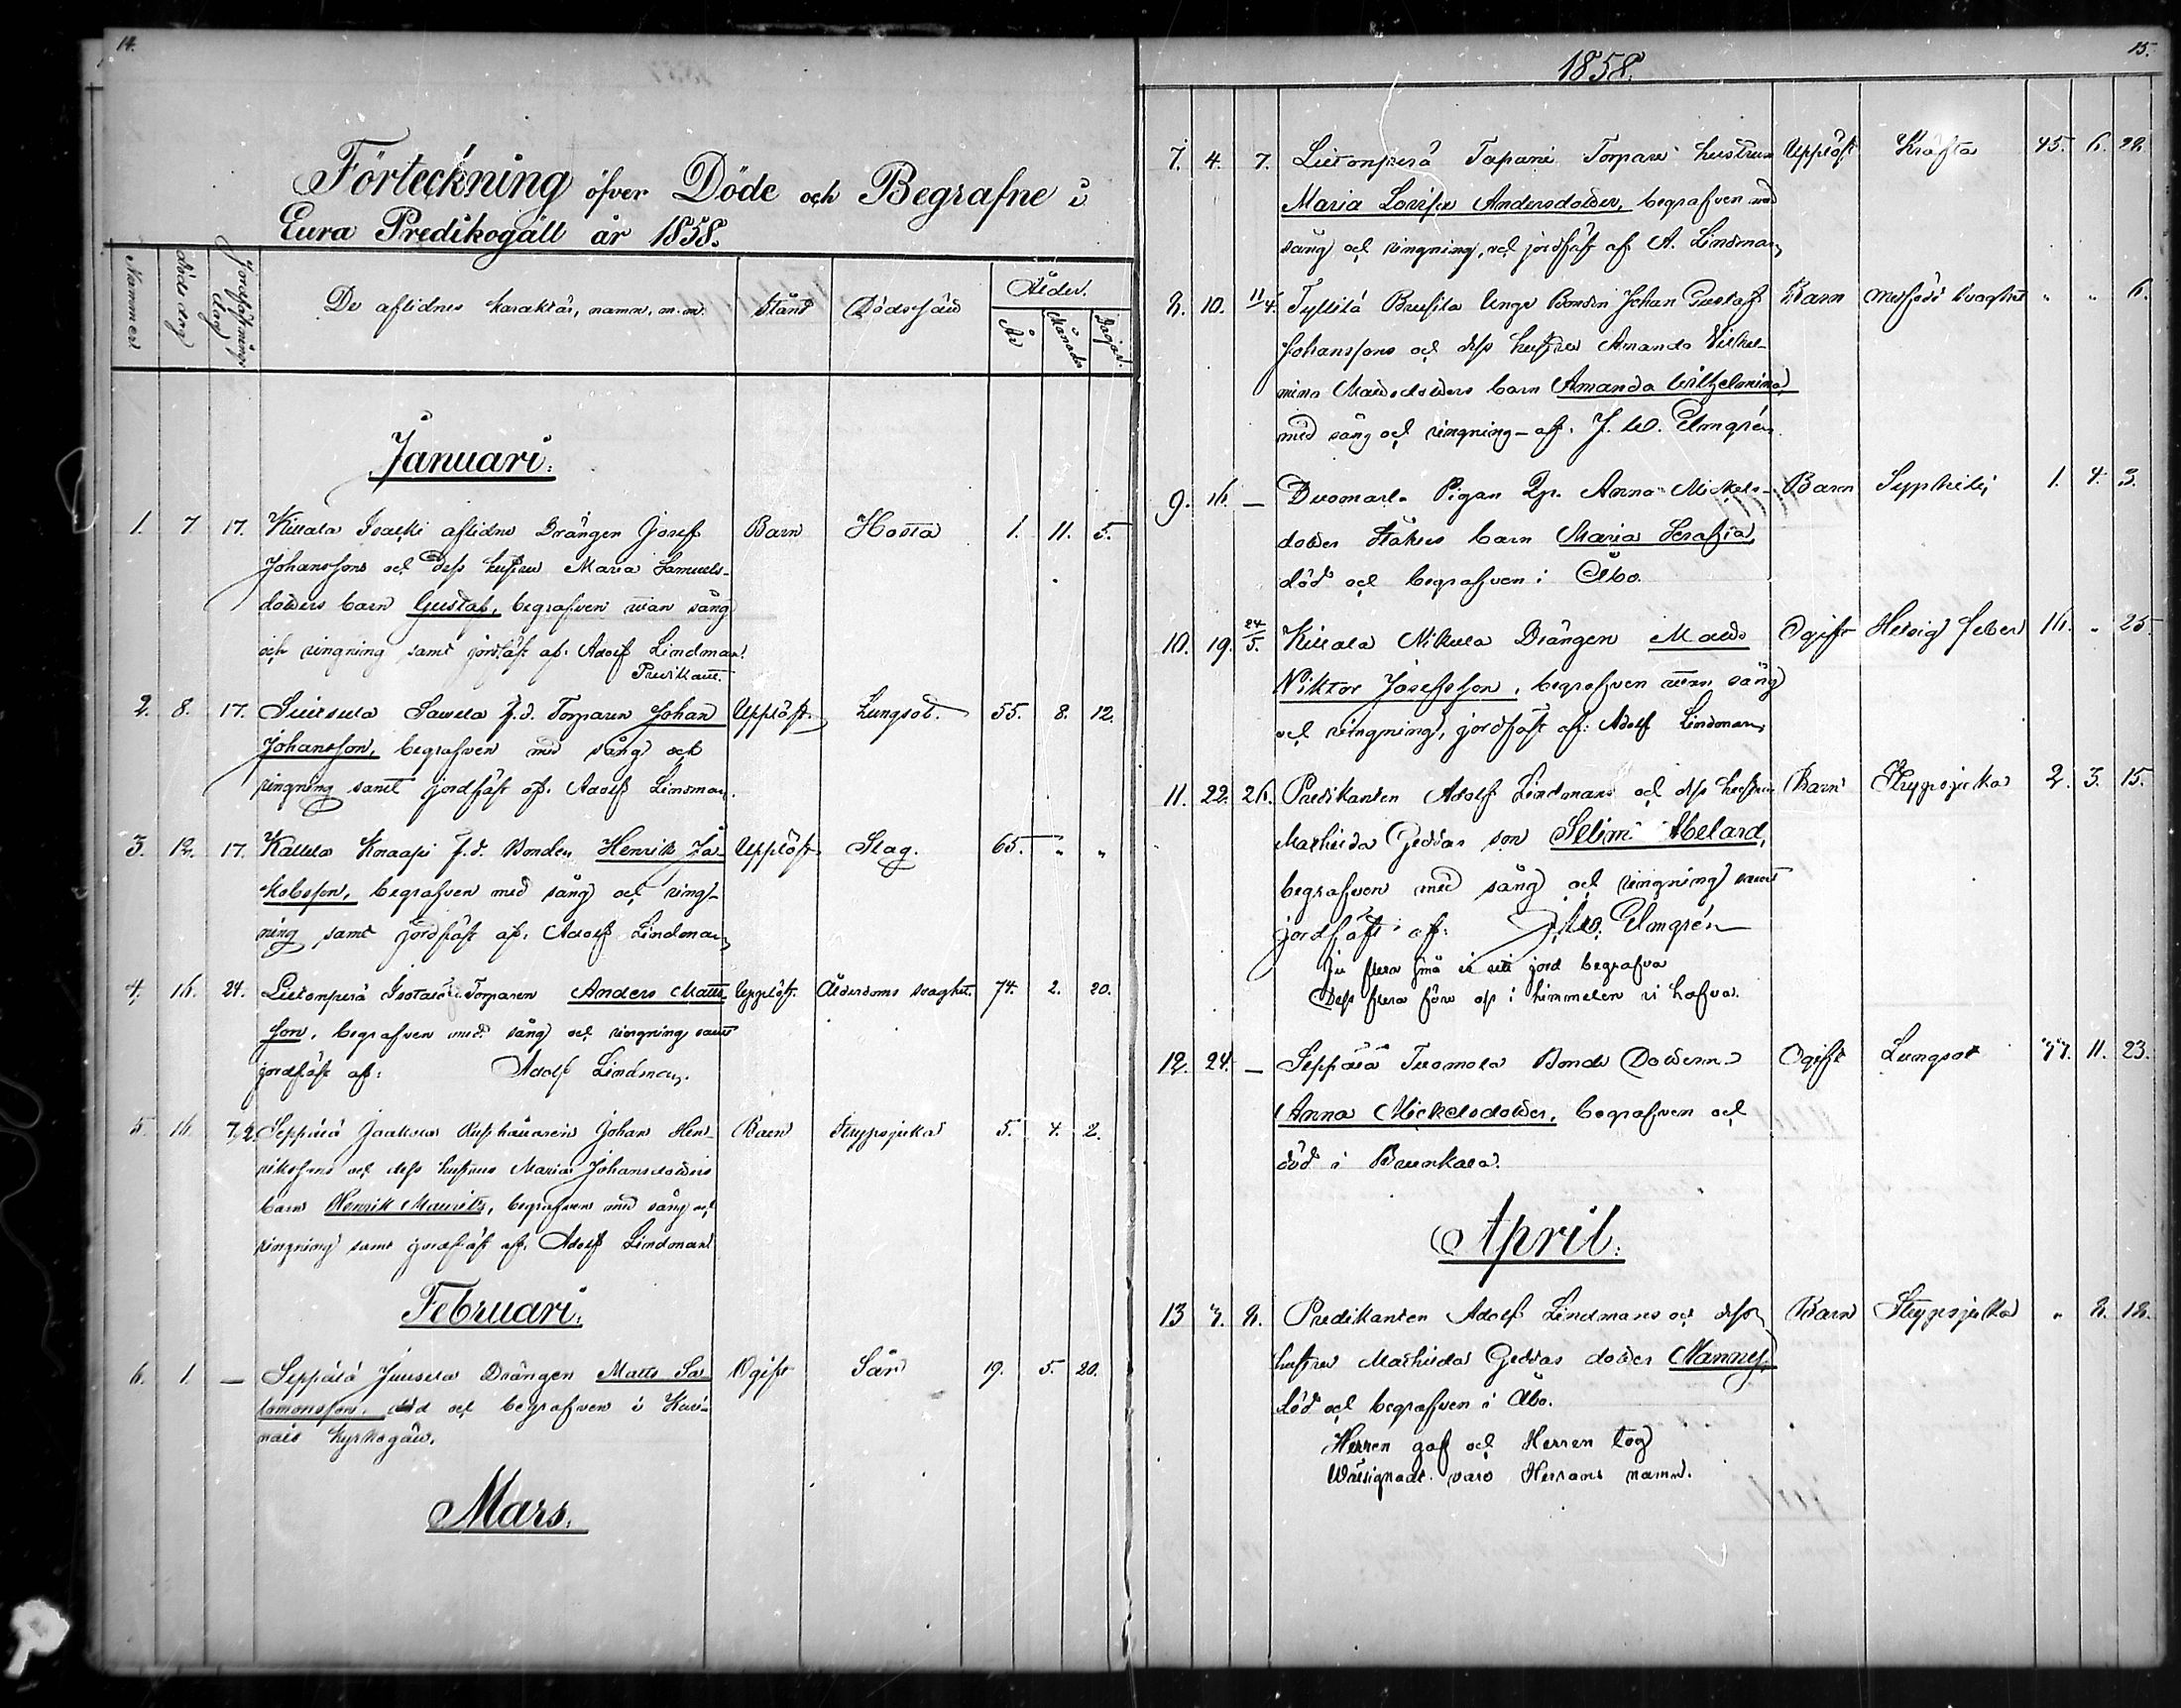 14.
Förteckning öfver Döde och Begrafne i
Eura Predikogäll år 1858.
Nummer Döde dag Jordfästnings dag De aflidnes karaktär, namn, m.m. Stånd Dödssjukd Ålder.
År Månader Dagar.
Januari.
1. 7 17. Isacki aflidne Drängen Josef Barn Hosta 1. 11. 5.
Johanssons och dess hustru Maria Samuels-
dotters barn Gustaf, begrafven utan sång
och ringning samt jordfäst af. Adolf Lindman.
Predikant.
2. 8. 17. Sawela f.d. Torparen Johan Upplöst. Lungsot. 55. 8. 12.
Johansson, begrafven med sång och
ringning samt jordfäst af. Adolf Lindman.
3. 12. 17. Knaapi f.d. Bonden Henrik Ja- Upplöst. Slag. 65. " "
kobsson, begrafven med sång och ring-
ning samt jordfäst af. Adolf Lindman
4. 16. 24. Torparen Anders Matts- Upplöst. Ålderdoms svaghet. 74. 2. 20.
son, begrafven med sång och ringning samt
jordfäst af: Adolf Lindman.
5. 16. 7/2. Seppälä Jaakola Johan Hen- Barn Strypsjuka 5. 4. 2.
rikssons och dess hustrus Maria Johansdotters
barn Henrik Mauritz, begrafven med sång och
ringning samt jordfäst af. Adolf Lindman
Februari.
6. 1. — Seppälä Juusela Drängen Matts Sa- Ogift Sår 19. 5. 20.
lomonsson, död och begrafven i
kyrkogård.
Mars.
1858.
15.
7. 4. 7. Tapani Torpare hustrun Upplöst Kräfta 45. 6. 22.
Maria Lovisa Andersdotter, begrafven med
sång och ringning, och jordfäst af A. Lindman
8. 10. 11/4. Unge Bonden Johan Gustaf Barn Medfödd svaghet " " 6.
Johanssons och dess hustru Amanda Vilhel-
mina barn Amanda Wilhelmina,
med sång och ringning af. J. W. Elmgrén.
9. 16. — Pigan Anna Mickels- Barn Syphilis 1. 4. 3.
dotter barn Maria Serafia,
död och begrafven i Åbo.
10. 19. 24/5. Nikula Drängen Matts Ogift Hetsig feber 16. " 25.
Viktor Josefsson, begrafven utan sång
och ringning, jordfäst af: Adolf Lindman
11. 22. 26. Predikanten Adolf Lindmans och dess hustru Barn Strypsjuka 2. 3. 15.
Mathilda Geddas son Selim Abelard,
begrafven med sång och ringning samt
jordfäst af: J. W. Elmgrén
Ju flera små i jord begrafva
Dess flera före oss i himmelen vi hafva.
12. 24. — Seppälä Tuomola Bonde Dottern Ogift Lungsot 11. 23.
Anna Mickelsdotter, begrafven och
död i
April.
13 7. 8. Predikanten Adolf Lindmans och dess Barn Strypsjuka " 8. 12.
hustru Mathilda Geddas dotter Nanny,
död och begrafven i Åbo.
Herren gaf och Herren tog
Wälsignadt vare Herrans namn.